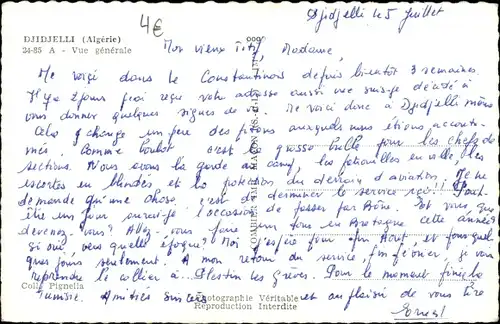 4€
Djidjelli le 5 Juillet
DJIDJELLI (Algérie)
24-85 A - Vue générale
Mon vieux Tity, Madame,
Me voici dans le Constantinois depuis bientôt 3 semaines.
Il y a 2 jours j'ai reçu votre adresse aussi me suis-je décidé à
vous donner quelques signes de vie. Me voici donc à Djidjelli même
Cela change un peu des pitons auxquels nous étions accoutu-
més. Comme boulot c'est la grosse balle pour les chefs de
sections. Nous avons la garde au camp, les patrouilles en ville, les
escortes en blindés et la protection du terrain d'aviation. Je ne
demande qu'une chose, c'est de terminer le service ici! Peut-
être un jour aurai-je l'occasion de passer par Bône. Et vous que
devenez-vous? Allez-vous faire un tour en Bretagne cette année
si oui vers quelle époque? Moi j'espère pour fin Août, et pour quel
ques jours seulement. A mon retour du service, fin février, je vais
reprendre le collier à Plestin les Grèves. Pour le moment finie la
Tunisie. Amitiés sincères et au plaisir de vous lire
Ernest
Colle Pignella
Photographie Véritable
Reproduction Interdite
COMBIER IMP. MACON